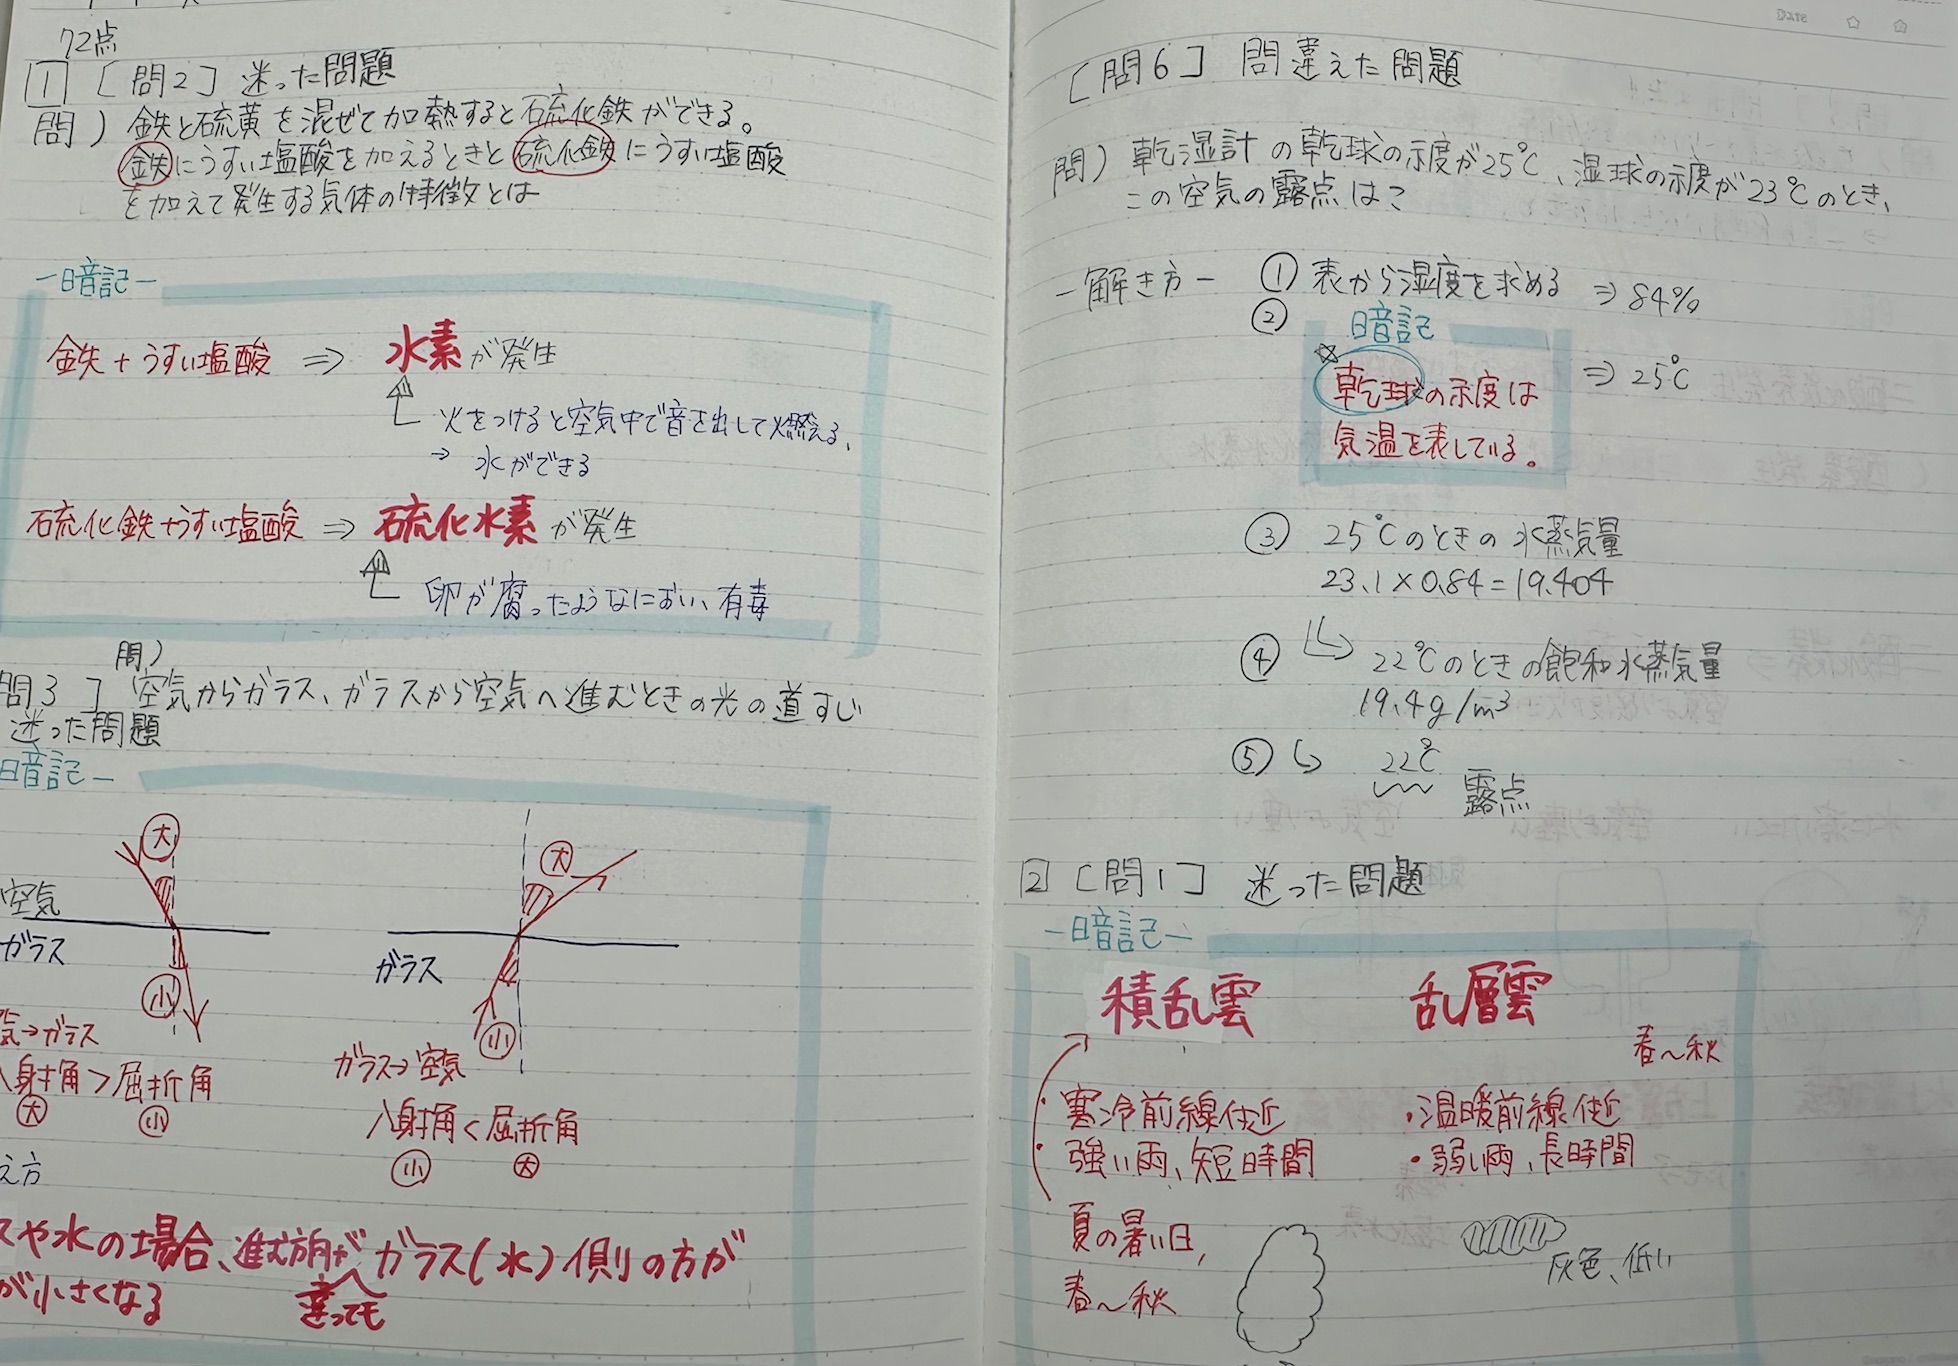 72点
1 [問2] 迷った問題
問) 鉄と硫黄を混ぜて加熱すると硫化鉄ができる。
鉄にうすい塩酸を加えるときと硫化鉄にうすい塩酸
を加えて発生する気体の特徴とは
-暗記-
鉄+うすい塩酸 ⇒ 水素が発生
火をつけると空気中で音を出して燃える、
→ 水ができる
硫化鉄+うすい塩酸 ⇒ 硫化水素が発生
卵が腐ったようなにおい、有毒
問)
問3] 空気からガラス、ガラスから空気へ進むときの光の道すじ
迷った問題
暗記-
大
大
空気
ガラス
ガラス
小
小
気→ガラス
ガラス→空気
入射角>屈折角
大 小
入射角<屈折角
小 大
え方
スや水の場合、進む方向が ガラス(水)側の方が
違っても
が小さくなる
Date
[問6] 間違えた問題
問) 乾湿計の乾球の示度が25℃、湿球の示度が23℃のとき、
この空気の露点は?
-解き方- ① 表から湿度を求める ⇒ 84%
② 暗記
乾球の示度は ⇒ 25℃
気温を表している。
③ 25℃のときの水蒸気量
23.1×0.84=19.404
④ 22℃のときの飽和水蒸気量
19.4g/m³
⑤ 22℃
露点
2 [問1] 迷った問題
-暗記-
積乱雲 乱層雲
春〜秋
・寒冷前線付近 ・温暖前線付近
・強い雨、短時間 ・弱い雨、長時間
夏の暑い日,
春〜秋
灰色、低い